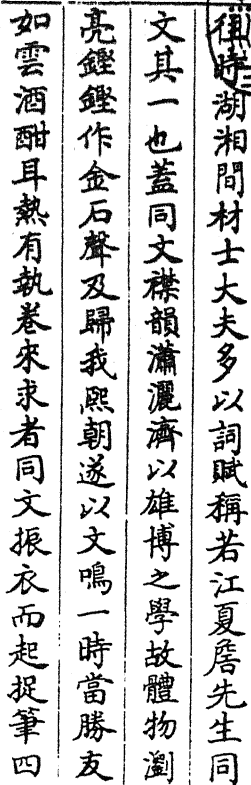 往時湖湘間材士大夫多以詞賦稱若江夏詹先生同
文其一也蓋同文襟韻瀟灑濟以雄博之學故體物瀏
亮鏗鏗作金石聲及歸我熙朝遂以文鳴一時當勝友
如雲酒酣耳熱有執卷來求者同文振衣而起捉筆四